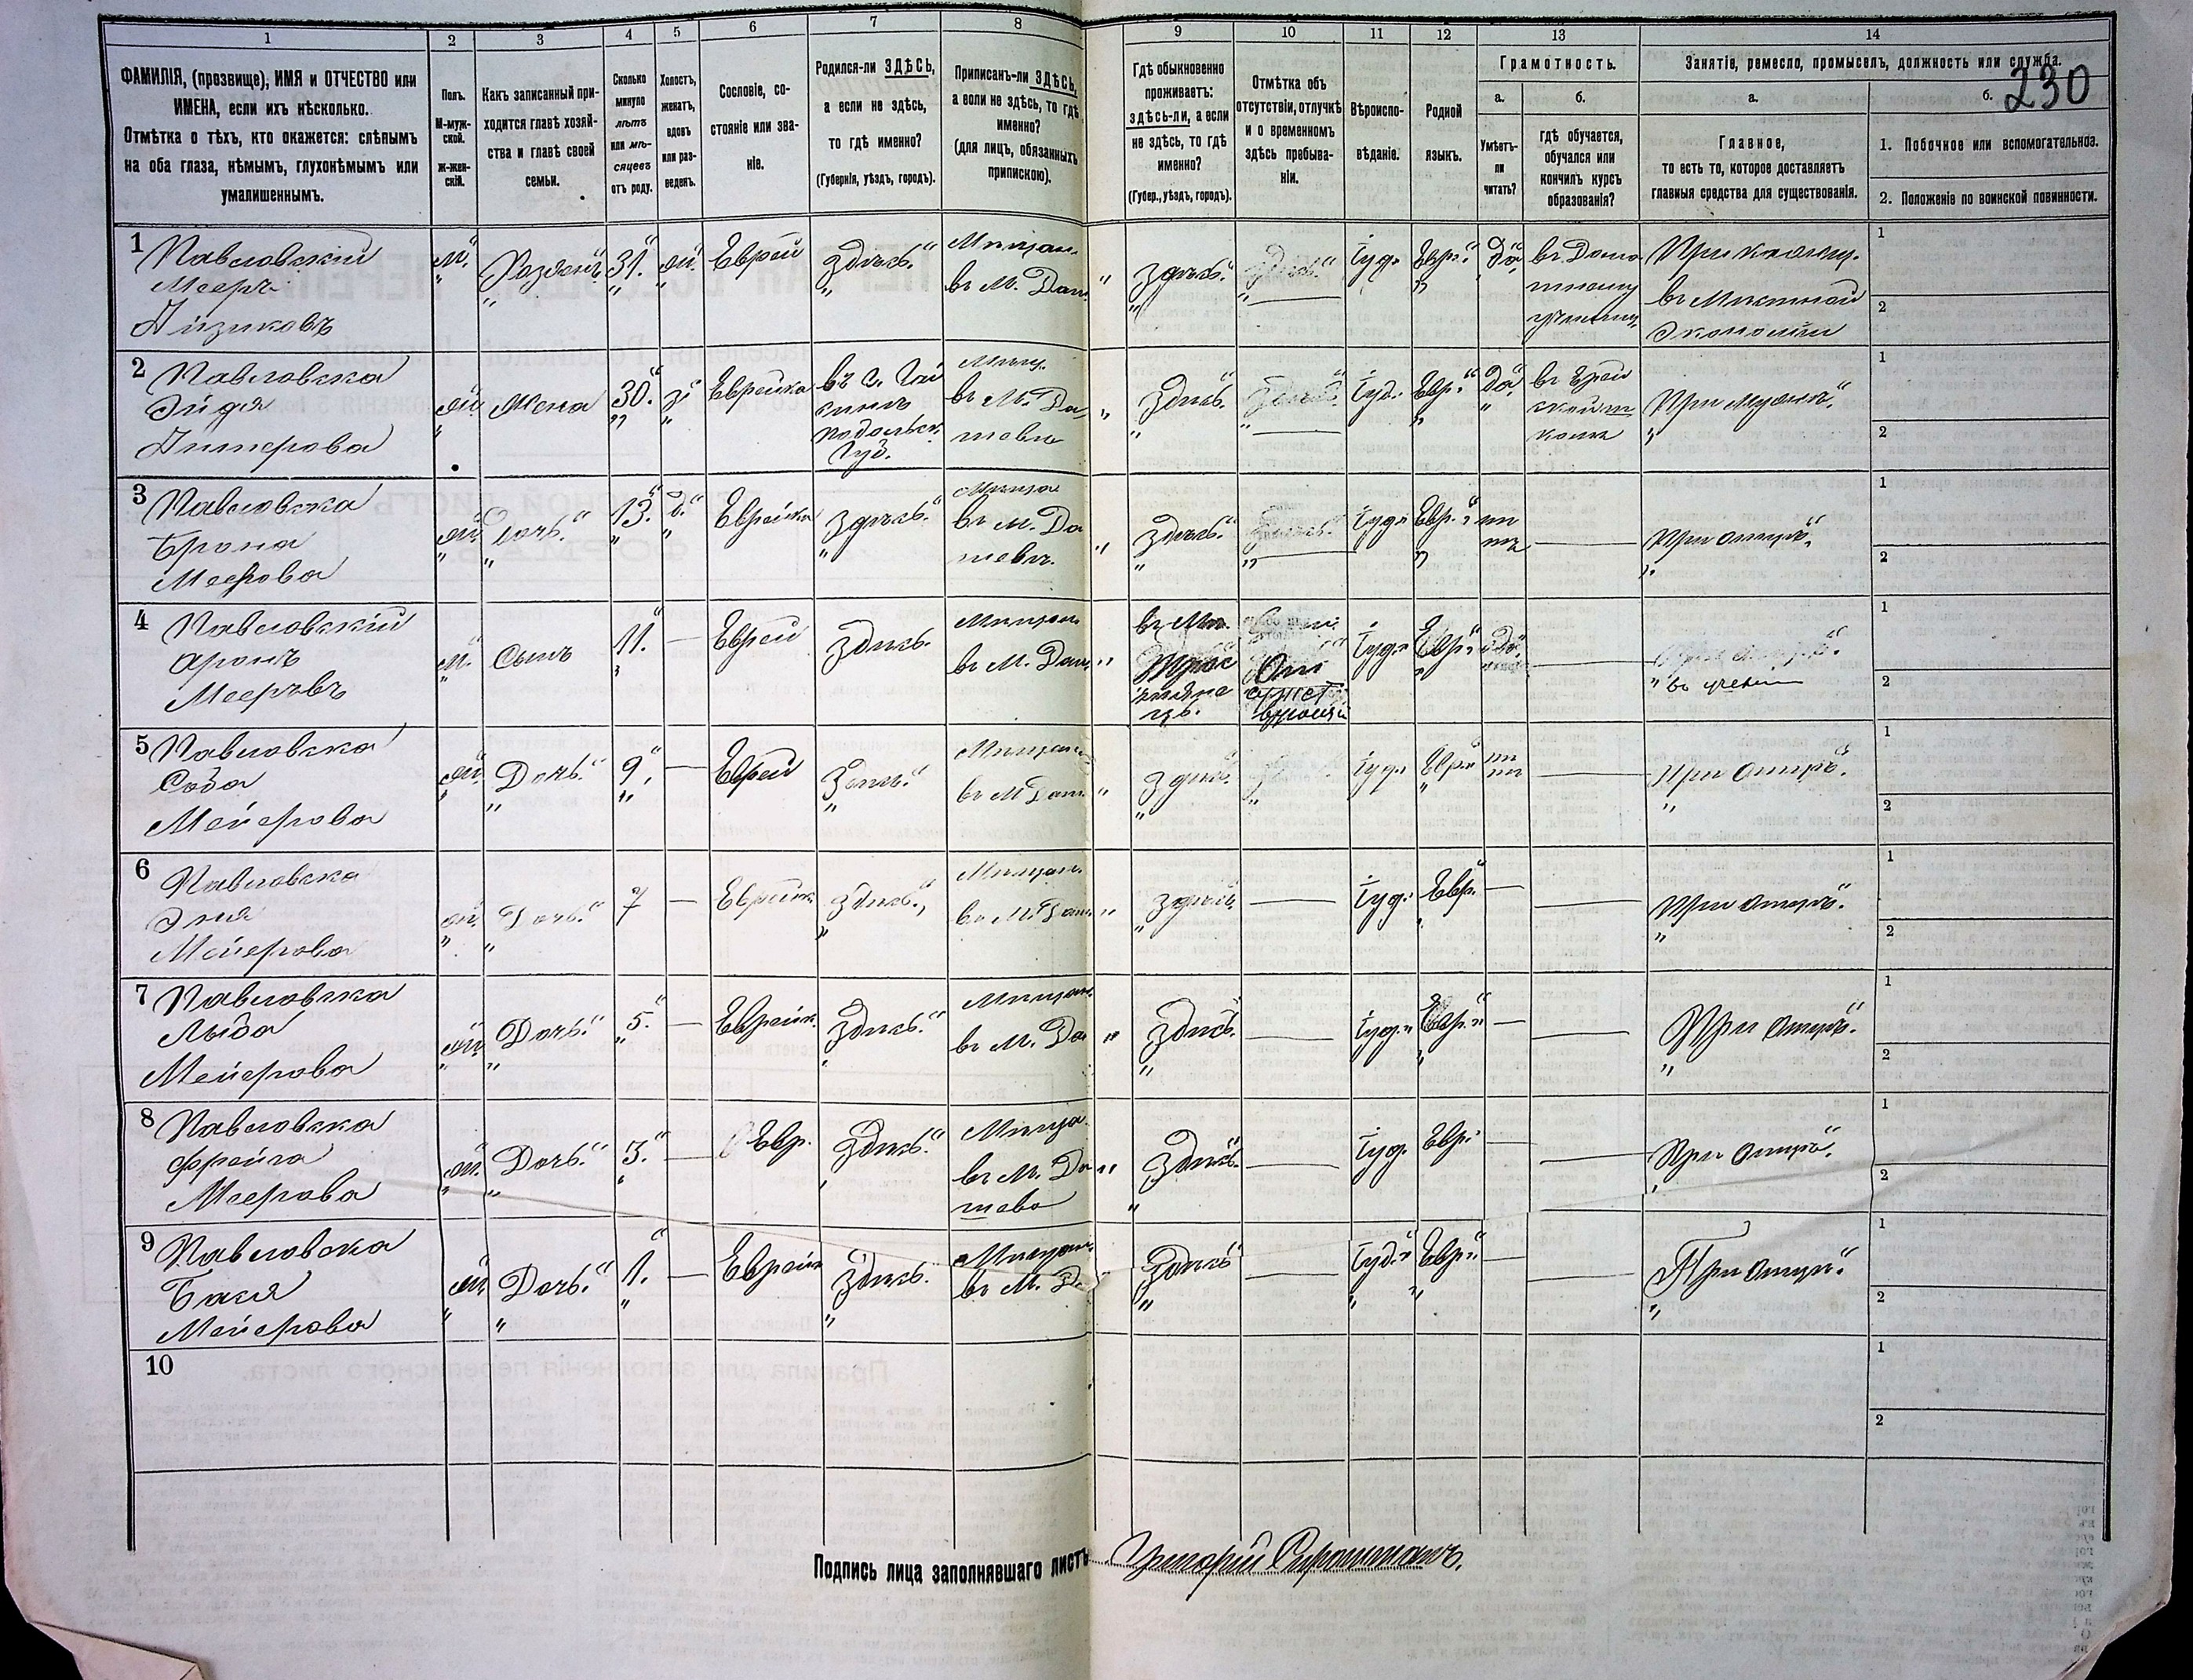 1 2 3 4 5 6 7 8 9 10 11 12 13 14
230
ФАМИЛІЯ, (прозвище), ИМЯ и ОТЧЕСТВО или
ИМЕНА, если ихъ нѣсколько.
Отмѣтка о тѣхъ, кто окажется: слѣпымъ
на оба глаза, нѣмымъ, глухонѣмымъ или
умалишеннымъ.
Полъ.
М-муж-
ской.
Ж-жен-
скій.
Какъ записанный при-
ходится главѣ хозяй-
ства и главѣ своей
семьи.
Сколько
минуло
лѣтъ
или мѣ-
сяцевъ
отъ роду.
Холостъ,
женатъ,
вдовъ
или раз-
веденъ.
Сословіе, со-
стояніе или зва-
ніе.
Родился-ли ЗДѢСЬ,
а если не здѣсь,
то гдѣ именно?
(Губернія, уѣздъ, городъ).
Приписанъ-ли ЗДѢСЬ,
а если не здѣсь, то гдѣ
именно?
(для лицъ, обязанныхъ
припискою).
Гдѣ обыкновенно
проживаетъ:
здѣсь-ли, а если
не здѣсь, то гдѣ
именно?
(Губер., уѣздъ, городъ).
Отмѣтка объ
отсутствіи, отлучкѣ
и о временномъ
здѣсь пребыва-
ніи.
Вѣроиспо-
вѣданіе.
Родной
языкъ.
Грамотность.
а.
Умѣетъ-
ли
читать?
б.
гдѣ обучается,
обучался или
кончилъ курсъ
образованія?
Занятіе, ремесло, промыселъ, должность или служба.
а.
Главное,
то есть то, которое доставляетъ
главныя средства для существованія.
б.
1. Побочное или вспомогательное.
2. Положеніе по воинской повинности.
1
Павловскій
Мееръ
Айзиковъ
м.
Хозяинъ
31.
ж.
Еврей
здѣсь.
Мѣщан.
въ М. Даш
здѣсь.
Іуд.
Евр.
Да
въ Дома
1
2
2
Павловска
Эйдя
ж.
Жена
30.
з
Еврейка
въ с. Гай
Подольск.
Губ.
Мѣщ.
въ М. Да
шевѣ
здѣсь.
Іуд.
Евр.
Да
въ Еврей
При мужѣ.
1
2
3
Павловска
Брона
Меерова
ж.
Дочь.
13.
д.
Еврейка
здѣсь.
Мѣща
въ М. Да
шевѣ.
здѣсь.
Іуд.
Евр.
нѣ
тъ
При отцѣ.
1
2
4
Павловскій
Аронъ
Мееровъ
м.
Сынъ
11.
Еврей
здѣсь.
Мѣщан
въ М. Даш
Іуд.
Евр.
Да
въ учении
1
2
5
Павловска
Соба
Мейерова
ж.
Дочь.
9.
Еврей
здѣсь.
Мѣщан
въ М Даш
здѣсь.
Іуд.
Евр.
нѣ
тъ
При отцѣ.
1
2
6
Павловска
Эня
Мейерова
ж.
Дочь.
7
Еврейк
здѣсь.
Мѣщан
въ М. Даш
здѣсь.
Іуд.
Евр.
При отцѣ.
1
2
7
Павловска
Лыба
Мейерова
ж.
Дочь.
5.
Еврейк.
здѣсь.
Мѣщан
въ М. Да
здѣсь.
Іуд.
Евр.
При отцѣ.
1
2
8
Павловска
Фрейга
Меерова
ж.
Дочь.
3.
Евр.
здѣсь.
Мѣща
въ М. Да
шева
здѣсь.
Іуд.
Евр.
При отцѣ.
1
2
9
Павловска
Бася
Мейерова
ж.
Дочь.
1.
Еврейк
здѣсь.
Мѣщан
въ М. Да
здѣсь
Іуд.
Евр.
При отцѣ.
1
2
10
1
2
Подпись лица заполнявшаго листъ Григорій